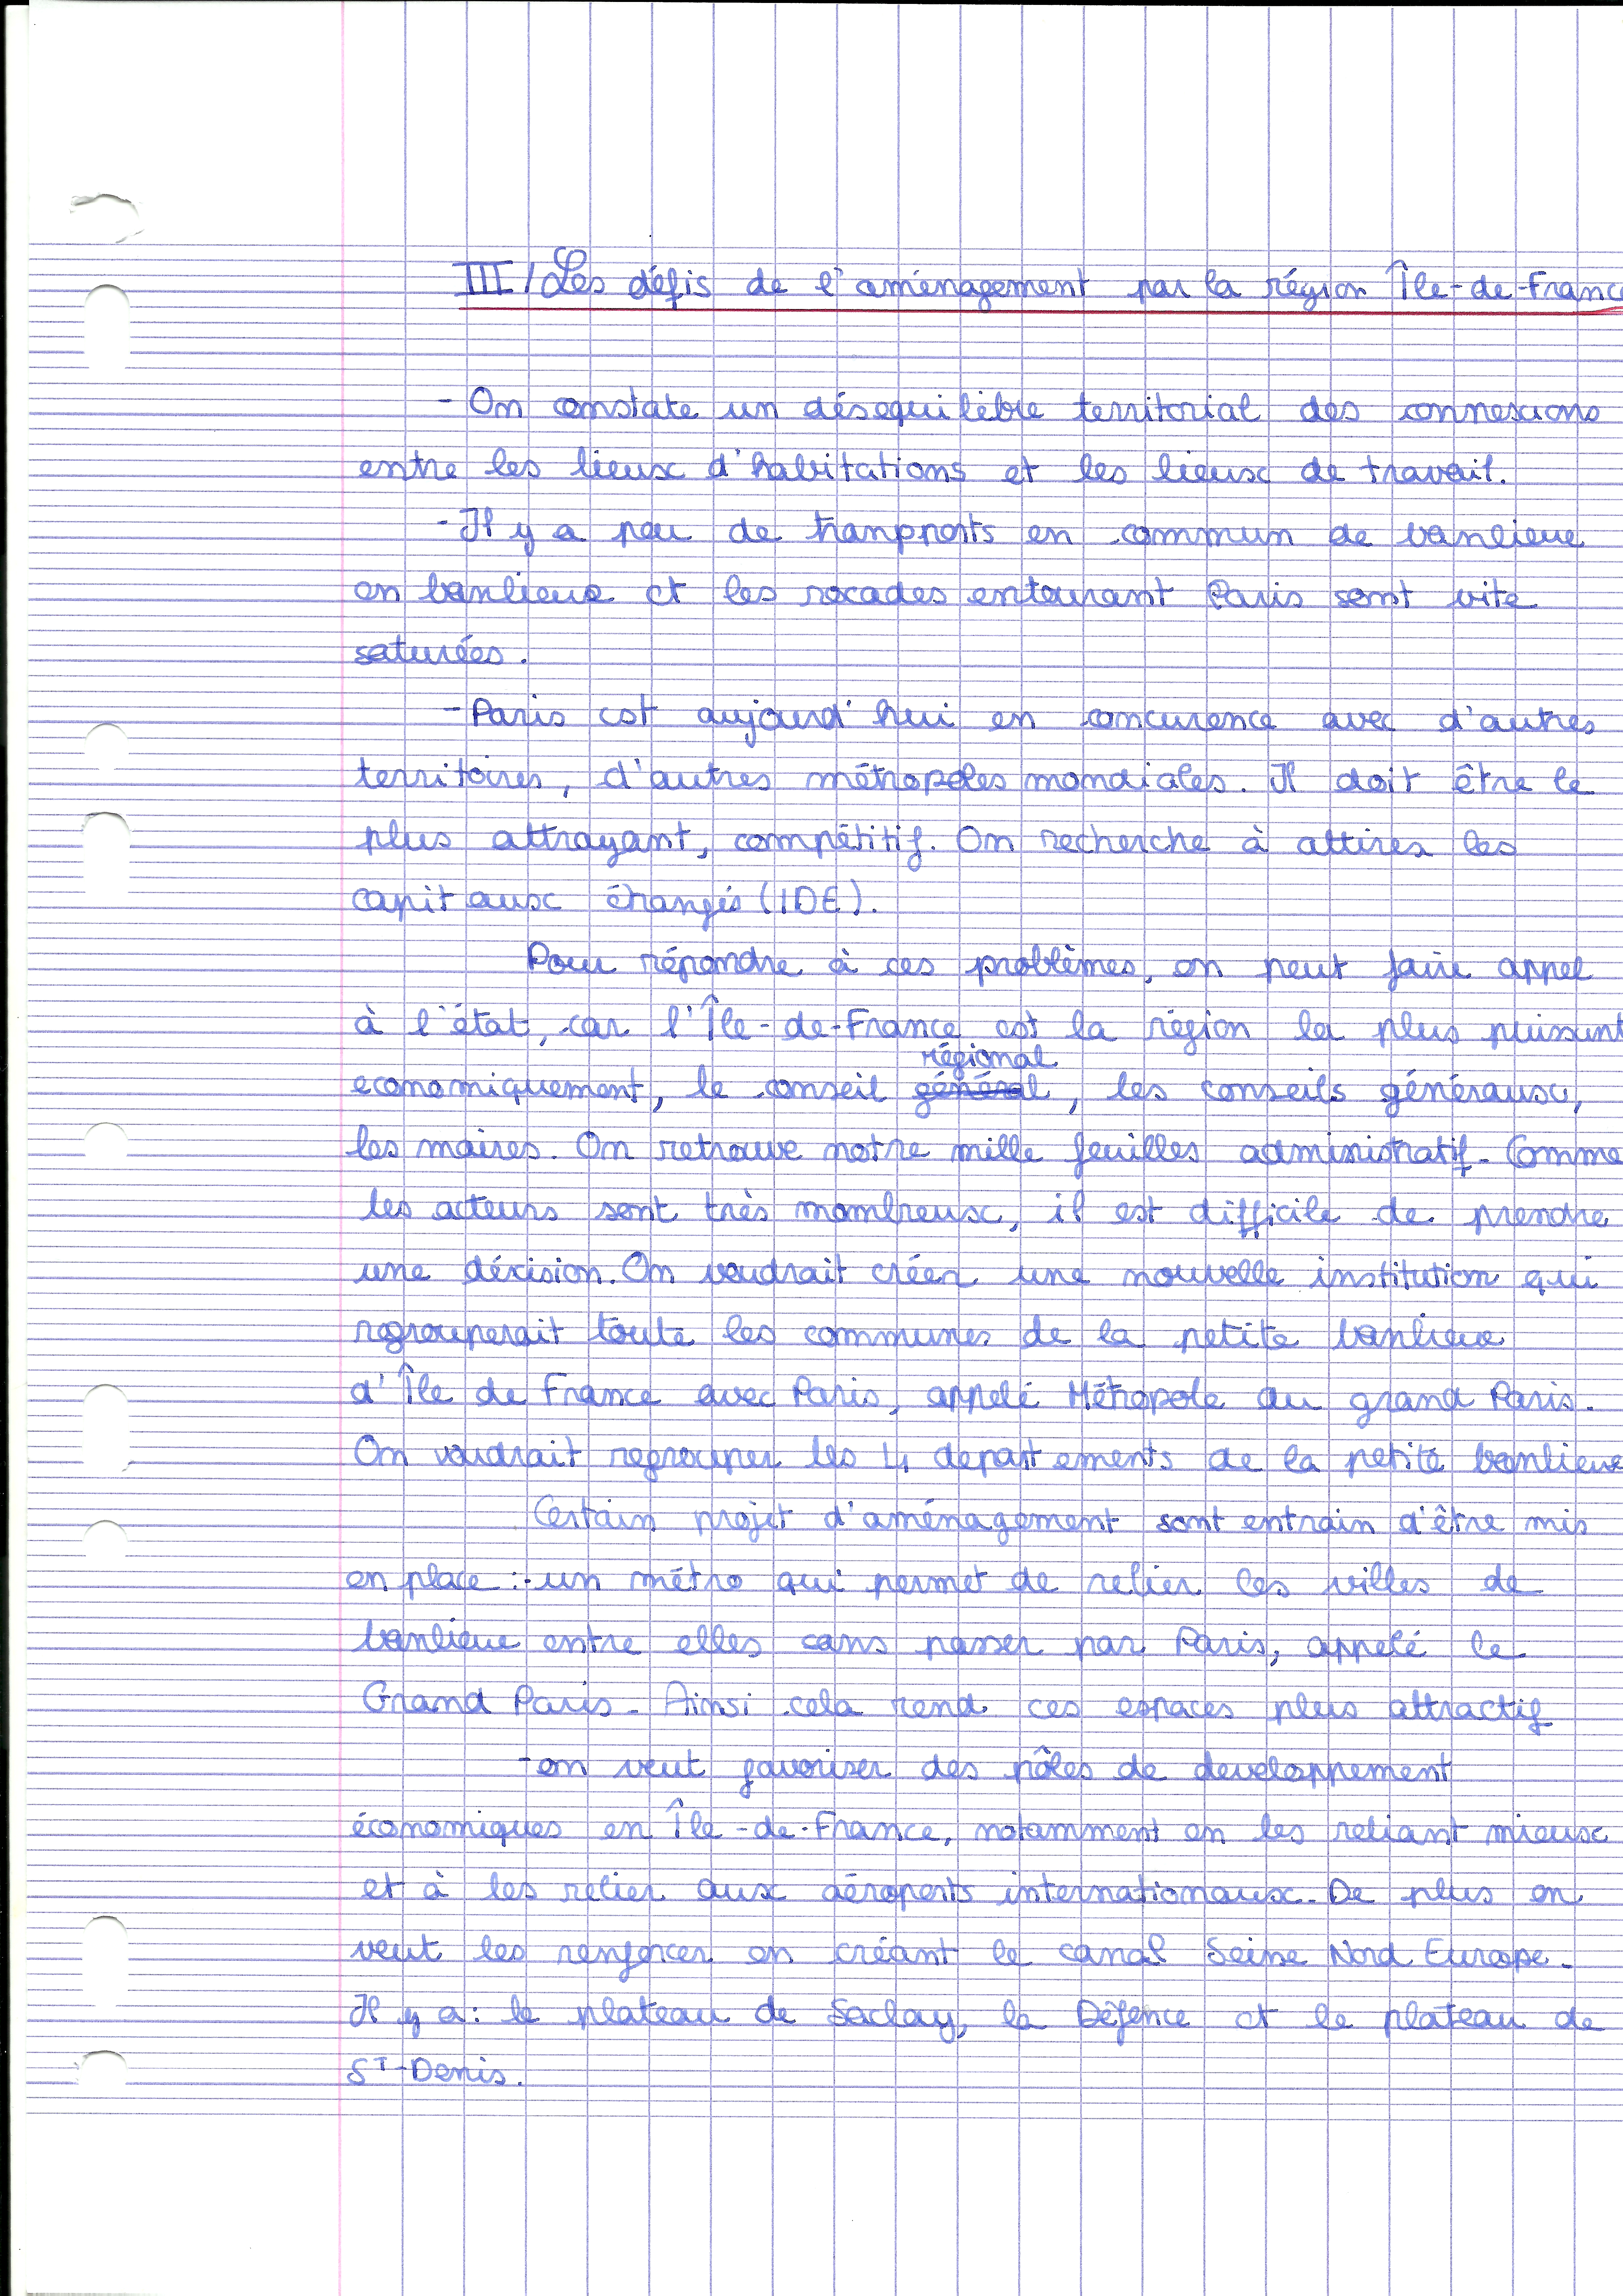 III / Les défis de l'aménagement par la région Île-de-France
- On constate un désequilibre territorial des connexions
entre les lieux d'habitations et les lieux de travail.
- Il y a peu de tranports en commun de banlieue
en banlieue et les rocades entourant Paris sont vite
saturées.
- Paris est aujourd'hui en concurence avec d'autres
territoires, d'autres métropoles mondiales. Il doit être le
plus attrayant, compétitif. On recherche à attirer les
capitaux étrangés (IDE).
Pour répondre à ces problèmes, on peut faire appel
à l'état, car l'Île-de-France est la région la plus puissant
economiquement, le conseil général régional, les conseils généraux,
les maires. On retrouve notre mille feuilles administratif. Comme
les acteurs sont très nombreux, il est difficile de prendre
une décision. On voudrait créer une nouvelle institution qui
regrouperait toute les communes de la petite banlieue
d'Île de France avec Paris, appelé Métropole du grand Paris.
On voudrait regrouper les 4 departements de la petite banlieue
Certain projet d'aménagement sont entrain d'être mis
en place : - un métro qui permet de relier les villes de
banlieue entre elles sans passer par Paris, appelé le
Grand Paris. Ainsi cela rend ces espaces plus attractif
- on veut favoriser des pôles de developpement
économiques en Île-de-France, notamment en les reliant mieux
et à les relier aux aéroports internationaux. De plus on
veut les renforcer en créant le canal Seine Nord Europe.
Il y a : le plateau de Saclay, la Défence et le plateau de
ST-Denis.